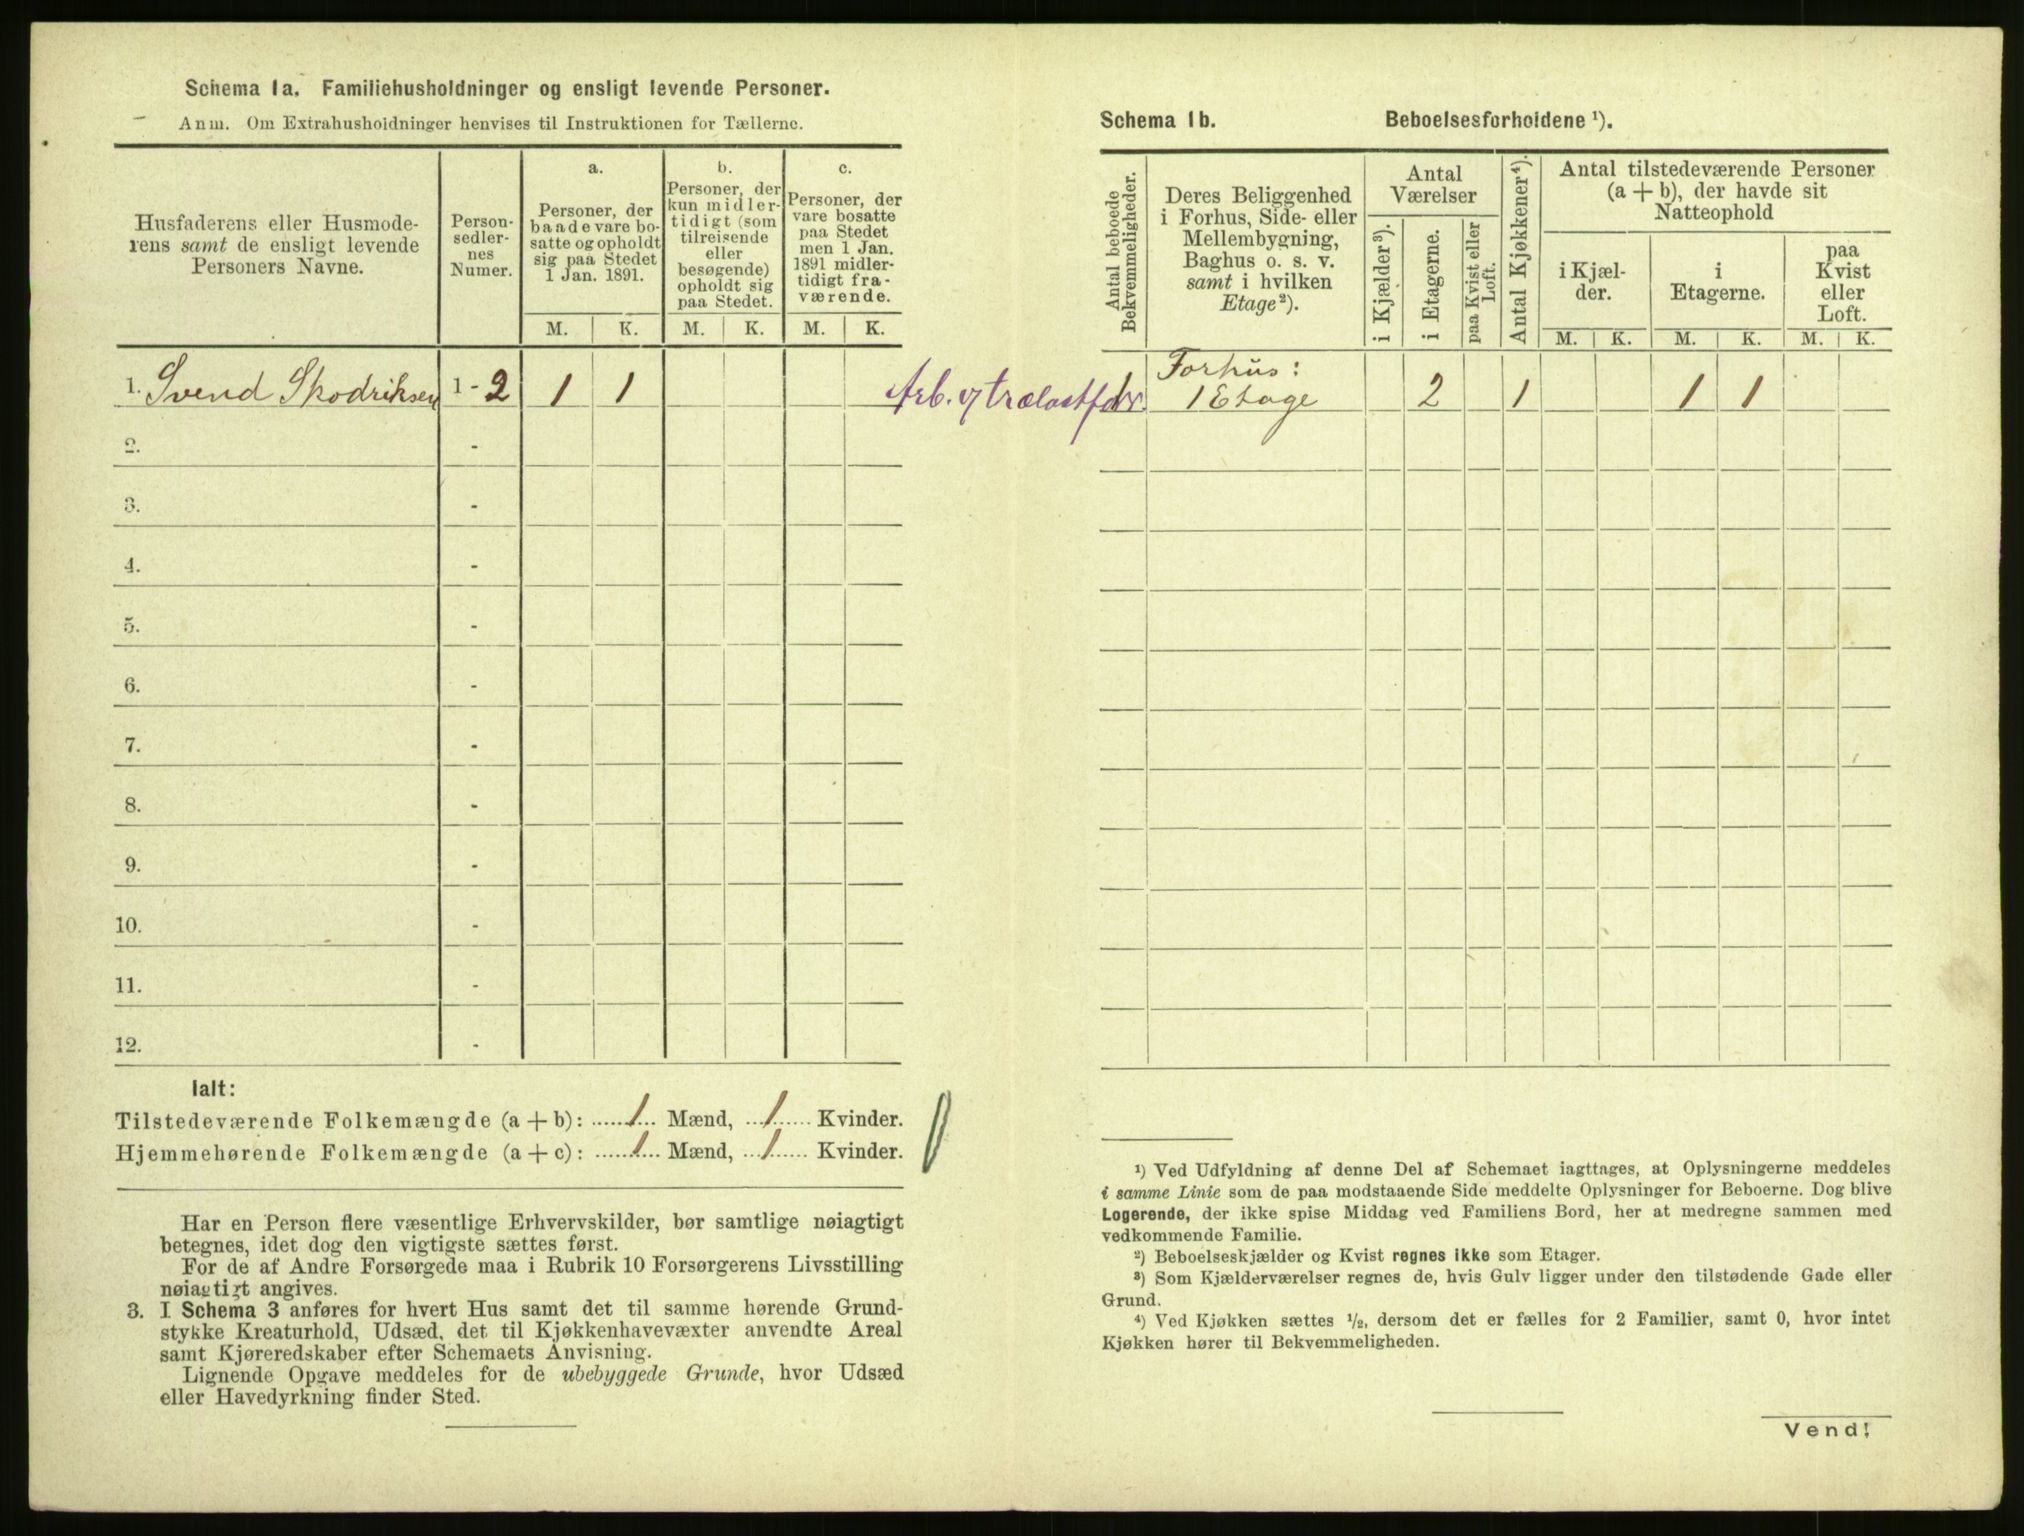 Schema 1a. Familiehusholdninger og ensligt levende Personer.
Anm. Om Extrahusholdninger henvises til Instruktionen for Tællerne.
Husfaderens eller Husmode-
rens samt de ensligt levende
Personers Navne.
Person-
sedler-
nes
Numer.
a.
Personer, der
baade vare bo-
satte og opholdt
sig paa Stedet
1 Jan. 1891.
b.
Personer, der
kun midler-
tidigt (som
tilreisende
eller
besøgende)
opholdt sig
paa Stedet.
c.
Personer, der
vare bosatte
paa Stedet
men 1 Jan.
1891 midler-
tidigt fra-
værende.
M. K. M. K. M. K.
1. Svend Skodriksen 1 - 2 1 1
2. -
3. -
4. -
5. -
6. -
7. -
8. -
9. -
10. -
11. -
12. -
Ialt:
Tilstedeværende Folkemængde (a + b): 1 Mænd, 1 Kvinder.
Hjemmehørende Folkemængde (a + c): 1 Mænd, 1 Kvinder.
Har en Person flere væsentlige Erhvervskilder, bør samtlige nøiagtigt
betegnes, idet dog den vigtigste sættes først.
For de af Andre Forsørgede maa i Rubrik 10 Forsørgerens Livsstilling
nøiagtigt angives.
3. I Schema 3 anføres for hvert Hus samt det til samme hørende Grund-
stykke Kreaturhold, Udsæd, det til Kjøkkenhavevæxter anvendte Areal
samt Kjøreredskaber efter Schemaets Anvisning.
Lignende Opgave meddeles for de ubebyggede Grunde, hvor Udsæd
eller Havedyrkning finder Sted.
Schema 1b. Beboelsesforholdene ¹).
Antal beboede
Bekvemmeligheder.
Deres Beliggenhed
i Forhus, Side- eller
Mellembygning,
Baghus o. s. v.
samt i hvilken
Etage²).
Antal
Værelser
i Kjælder³).
i Etagerne.
paa Kvist eller
Loft.
Antal Kjøkkener⁴).
Antal tilstedeværende Personer
(a + b), der havde sit
Natteophold
i Kjæl-
der.
i
Etagerne.
paa
Kvist
eller
Loft.
M. K. M. K. M. K.
Arb.
1
Forhus:
1 Etage 2 1 1 1
¹) Ved Udfyldning af denne Del af Schemaet iagttages, at Oplysningerne meddeles
i samme Linie som de paa modstaaende Side meddelte Oplysninger for Beboerne. Dog blive
Logerende, der ikke spise Middag ved Familiens Bord, her at medregne sammen med
vedkommende Familie.
²) Beboelseskjælder og Kvist regnes ikke som Etager.
³) Som Kjælderværelser regnes de, hvis Gulv ligger under den tilstødende Gade eller
Grund.
⁴) Ved Kjøkken sættes ½, dersom det er fælles for 2 Familier, samt 0, hvor intet
Kjøkken hører til Bekvemmeligheden.
Vend!